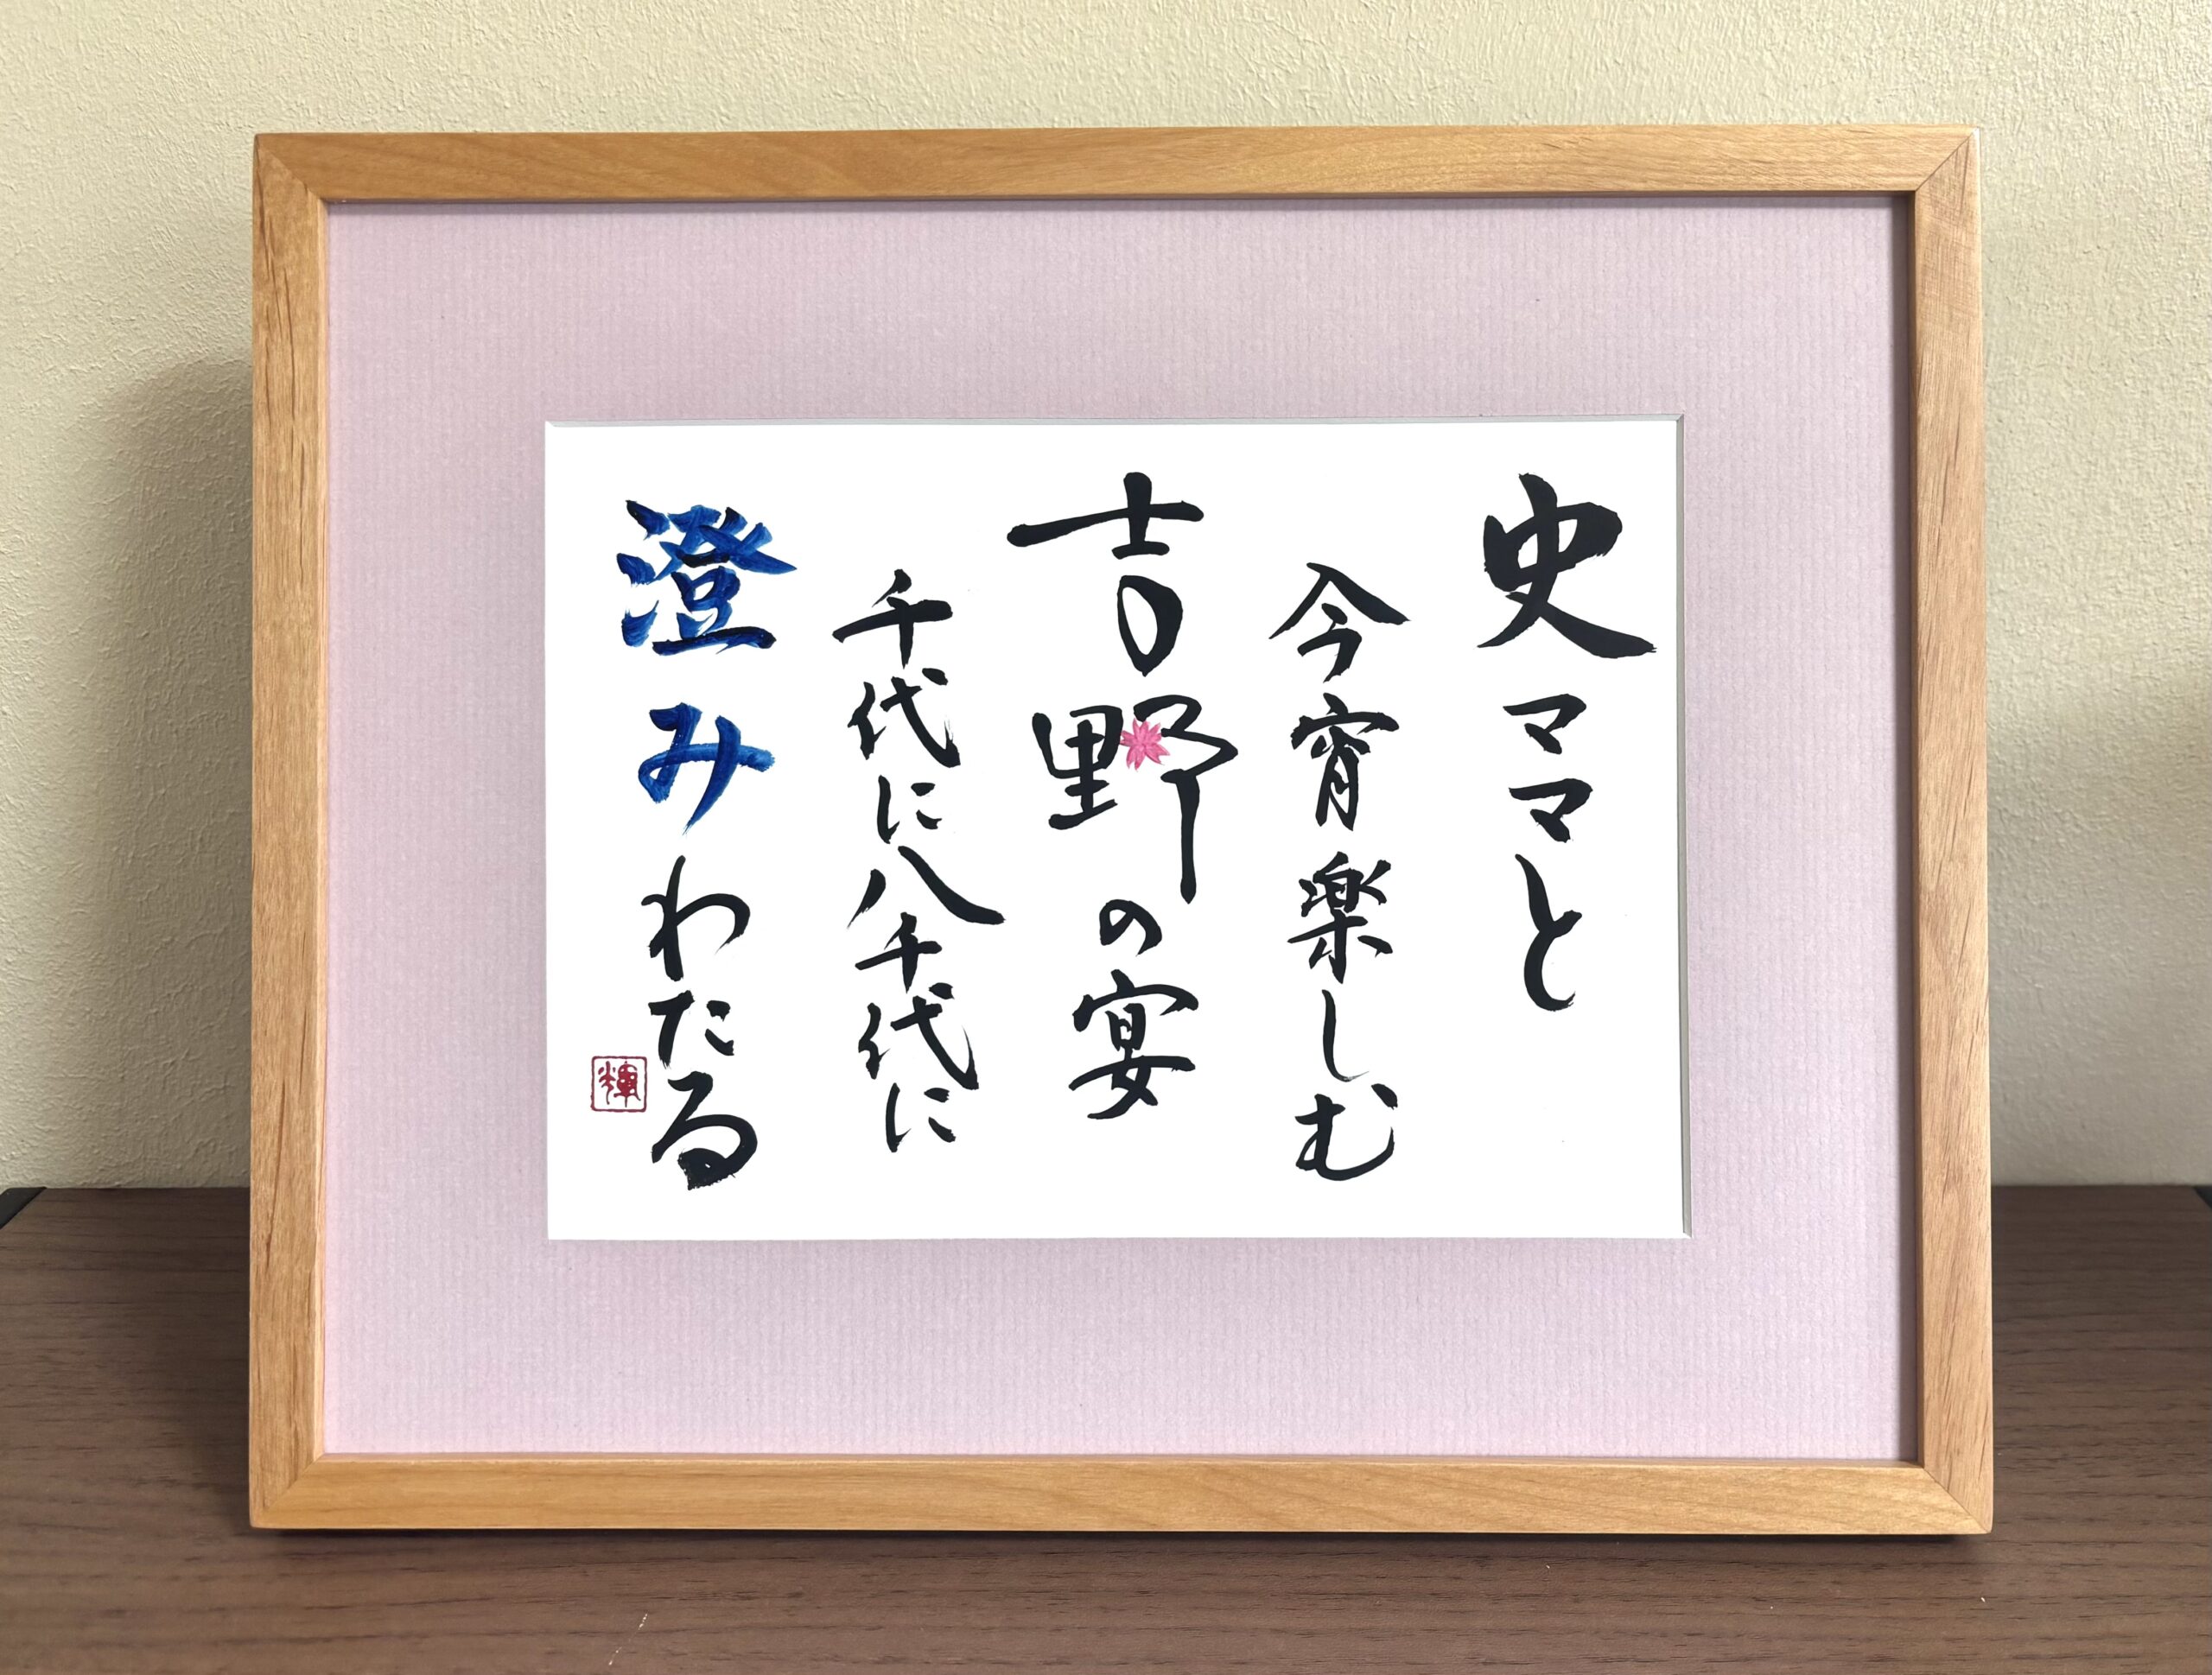 史ママと
今宵楽しむ
吉野の宴
千代に八千代に
澄みわたる
輝